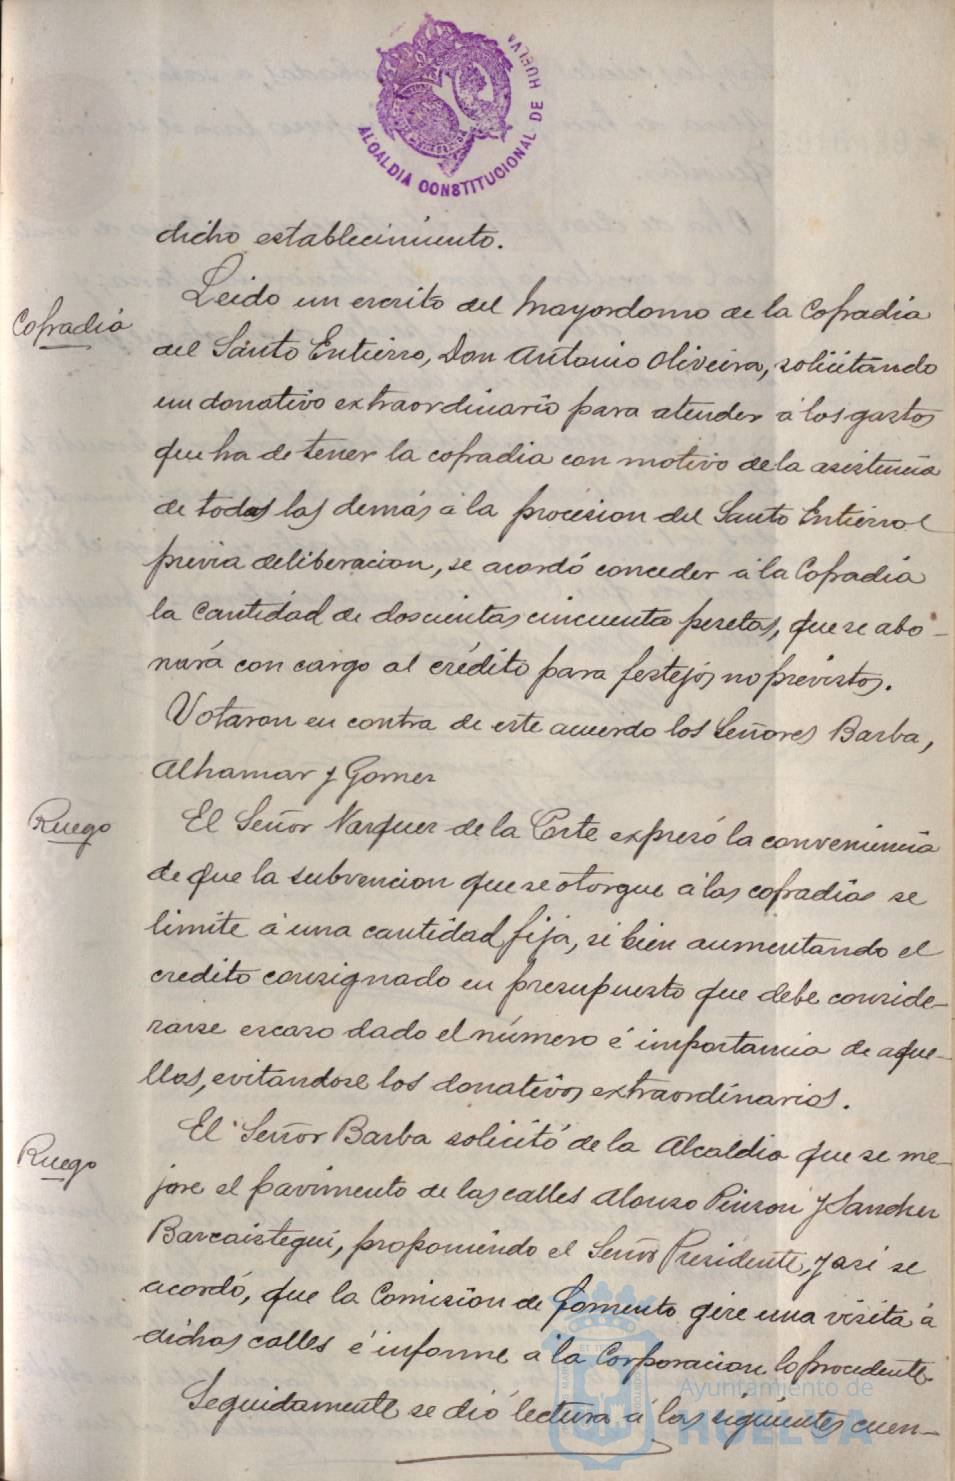 ALCALDIA CONSTITUCIONAL DE HUELVA
dicho establecimiento.
Cofradía
Leido un escrito del Mayordomo de la Cofradia
del Santo Entierro, Don Antonio Oliveira, solicitando
un donativo extraordinario para atender á los gastos
que ha de tener la cofradia con motivo de la asistencia
de todas las demás á la procesion del Santo Entierro é
prévia deliberacion, se acordó conceder á la Cofradia
la cantidad de doscientas cincuenta pesetas, que se abo-
nará con cargo al crédito para festejos no previstos.
Votaron en contra de este acuerdo los Señores Barba,
Alhamar y Gomez
Ruego
El Señor Vazquez de la Corte expresó la conveniencia
de que la subvencion que se otorgue á las cofradias se
limite á una cantidad fija, si bien aumentando el
credito consignado en presupuesto que debe conside-
rarse escaso dado el número é importancia de aque-
llas, evitandose los donativos extraordinarios.
Ruego
El Señor Barba solicitó de la Alcaldia que se me-
jore el pavimento de las calles Alonso Pinzon y Sanchez
Barcaiztegui, proponiendo el Señor Presidente, y asi se
acordó, que la Comision de Fomento gire una visita á
dichas calles é informe á la Corporacion lo procedente.
Seguidamente se dió lectura á las siguientes cuen-
Ayuntamiento de
HUELVA